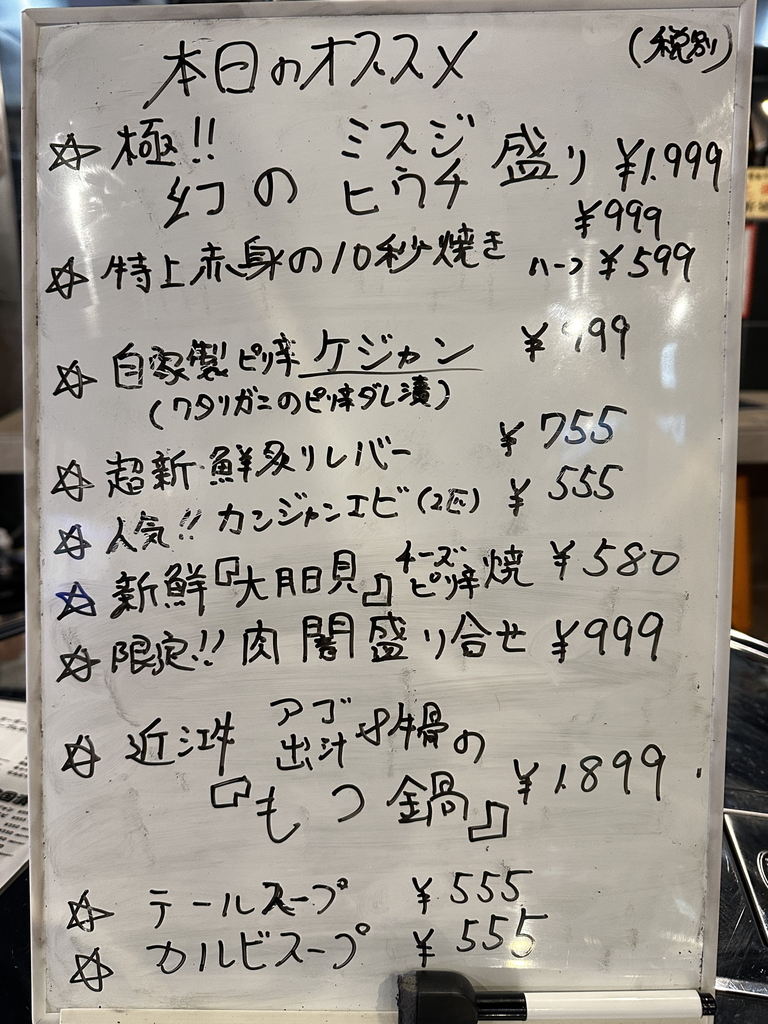 本日のオススメ (税別)
☆ 極!! 幻の ミスジ ヒウチ 盛り ¥1.999
¥999
☆ 特上赤身の10秒焼き ハーフ ¥599
☆ 自家製ピリ辛ケジャン ¥ 99
(ワタリガニのピリ辛ダレ漬)
☆ 超新鮮炙りレバー ¥755
☆ 人気!! カンジャンエビ(2匹) ¥555
☆ 新鮮『大月日貝』チーズ ピリ辛 焼 ¥580
☆ 限定!! 肉闇盛り合せ ¥999
☆ 近江牛 アゴ 出汁 牛骨の
『もつ鍋』 ¥1.899
☆ テールスープ ¥555
☆ カルビスープ ¥555